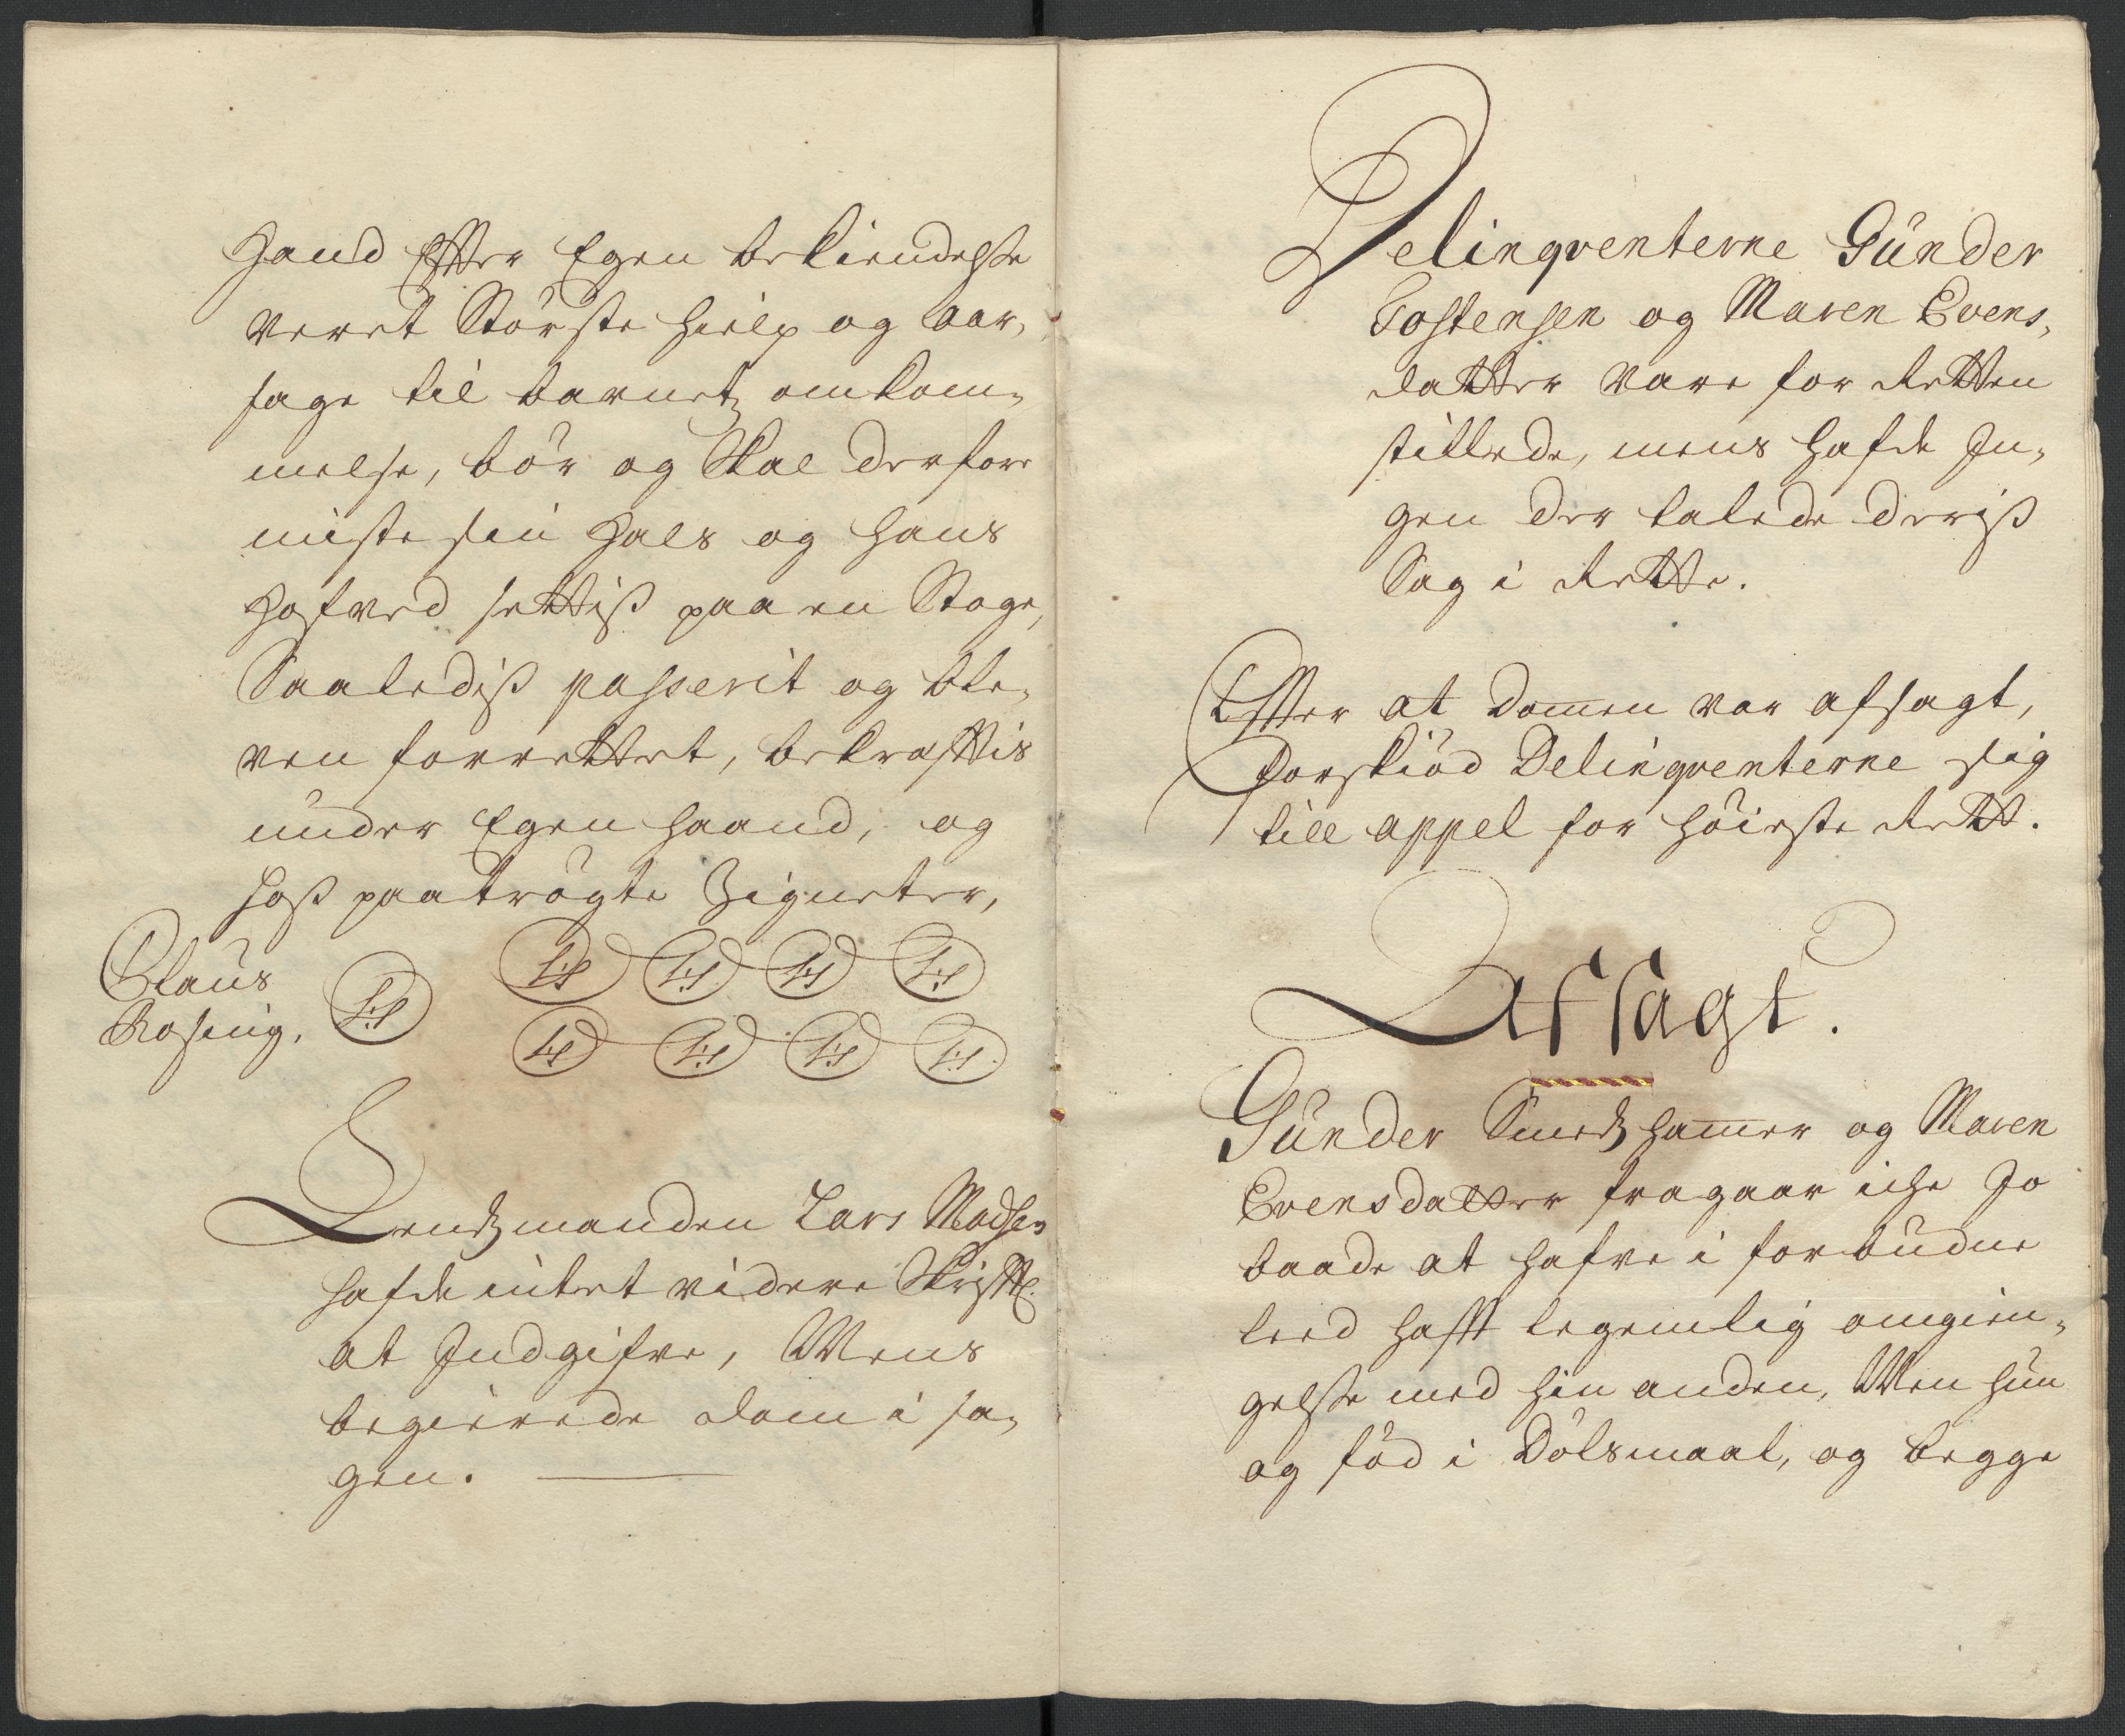 Hand Efter Egen bekiendelse
veret Störste hielp og aar,
sage til barnetz omkom,
melse, bör og Skal derfore
miste sin Hals og hans
Hofved settiß paa en Stage,
Saalediß passerit og ble,
ven forrettet, bekrefttis
under Egen haand, og
hoß paatrögte Zigneter,
Claus
Rosing.
LS LS LS LS LS
LS LS LS LS
Lendzmanden Lars Madsen
hafde intet videre Skriftl.
at Indgifve, Mens
begierede dom i sa,
gen.
Delinqventerne Gunder
Tostensen og Maren Evens,
datter vare for Retten
stillede, mens hafde In,
gen der talede deriß
Sag i Rette.
Efter at Domen var afsagt,
forskiöd Delinqventerne sig
till appel for höieste Rett.
Afsagt.
Gunder Smedzhamer og Maren
Evensdatter fragaar iche Jo
baade at hafve i forbudne
leed hafft legemlig omgien,
gelse med hin anden, Men hun
og föd i Dölsmaal, og begge